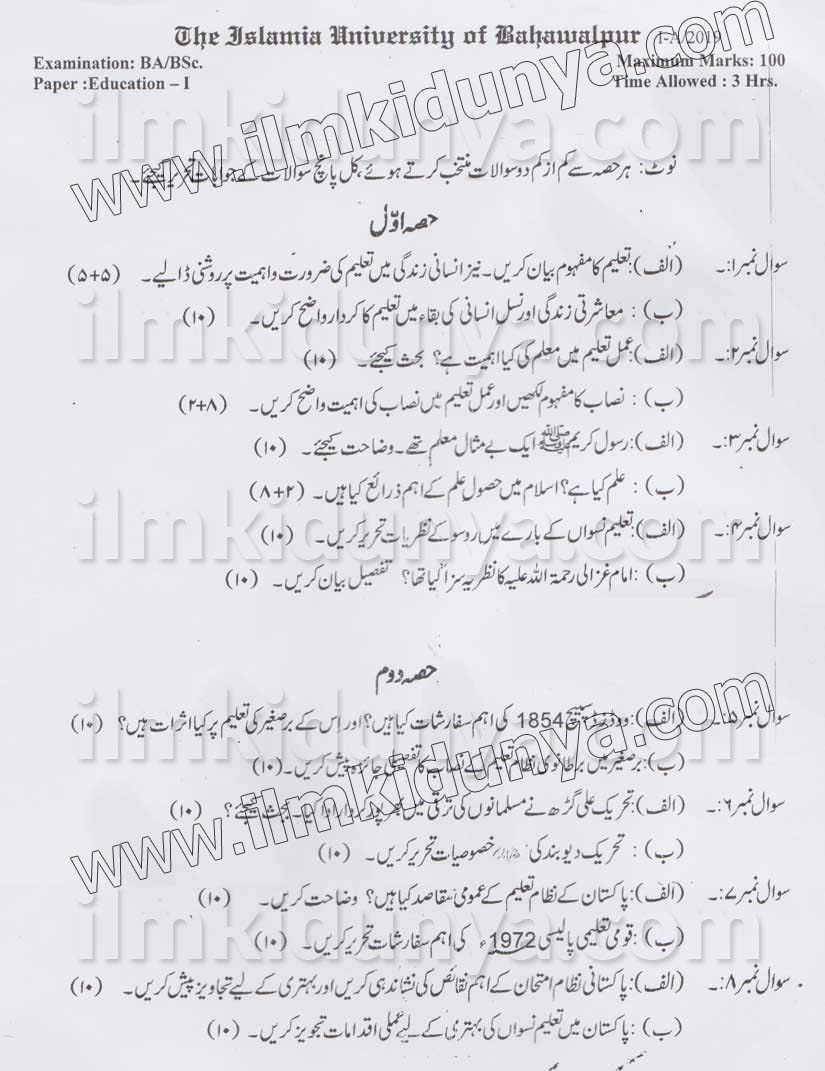 The Islamia University of Bahawalpur 1-A/2019
Examination: BA/BSc. Maximum Marks: 100
Paper :Education – I Time Allowed : 3 Hrs.
نوٹ: ہر حصہ سے کم از کم دو سوالات منتخب کرتے ہوئے، کل پانچ سوالات کے جوابات تحریر کیجئے۔
حصہ اوّل
سوال نمبر۱:۔ (الف): تعلیم کا مفہوم بیان کریں۔ نیز انسانی زندگی میں تعلیم کی ضرورت و اہمیت پر روشنی ڈالیے۔ (۵+۵)
(ب): معاشرتی زندگی اور نسل انسانی کی بقاء میں تعلیم کا کردار واضح کریں۔ (۱۰)
سوال نمبر۲:۔ (الف): عمل تعلیم میں معلم کی کیا اہمیت ہے؟ بحث کیجئے۔ (۱۰)
(ب): نصاب کا مفہوم لکھیں اور عمل تعلیم میں نصاب کی اہمیت واضح کریں۔ (۲+۸)
سوال نمبر۳:۔ (الف): رسول کریم ﷺ ایک بے مثال معلم تھے۔ وضاحت کیجئے۔ (۱۰)
(ب): علم کیا ہے؟ اسلام میں حصول علم کے اہم ذرائع کیا ہیں۔ (۸+۲)
سوال نمبر۴:۔ (الف): تعلیم نسواں کے بارے میں روسو کے نظریات تحریر کریں۔ (۱۰)
(ب): امام غزالی رحمۃ اللہ علیہ کا نظریہ سزا کیا تھا؟ تفصیل بیان کریں۔ (۱۰)
حصہ دوم
سوال نمبر۵:۔ (الف): ووڈز ڈسپیچ 1854 کی اہم سفارشات کیا ہیں؟ اور اِس کے برصغیر کی تعلیم پر کیا اثرات ہیں؟ (۱۰)
(ب): برصغیر میں برطانوی نظام تعلیم کے نصاب کا تفصیلی جائزہ پیش کریں۔ (۱۰)
سوال نمبر۶:۔ (الف): تحریک علی گڑھ نے مسلمانوں کی ترقی میں بھرپور کردار ادا کیا۔ بحث کیجئے؟ (۱۰)
(ب): تحریک دیوبند کی خصوصیات تحریر کریں۔ (۱۰)
سوال نمبر۷:۔ (الف): پاکستان کے نظام تعلیم کے عمومی مقاصد کیا ہیں؟ وضاحت کریں۔ (۱۰)
(ب): قومی تعلیمی پالیسی 1972ء کی اہم سفارشات تحریر کریں۔ (۱۰)
سوال نمبر۸:۔ (الف): پاکستانی نظام امتحان کے اہم نقائص کی نشاندہی کریں اور بہتری کے لیے تجاویز پیش کریں۔ (۱۰)
(ب): پاکستان میں تعلیم نسواں کی بہتری کے لیے عملی اقدامات تجویز کریں۔ (۱۰)
www.ilmkidunya.com
www.ilmkidunya.com
ilmkidunya.com
ilmkidunya.com
ilmkidunya.com
ilmkidunya.com
ilmkidunya.com